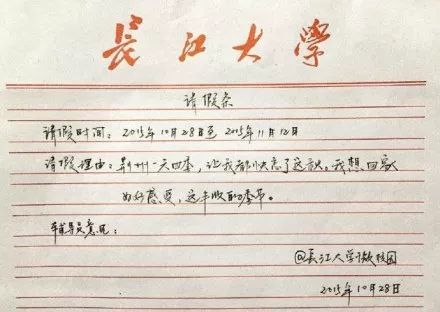 長江大学
请假条
请假时间：2015年10月28日至 2015年11月12日
请假理由：荆州一天四季，让我都快忘了这秋。我想回家
好好感受，这丰收的季节。
辅导员意见：
@长江大学微校园
2015年10月28日